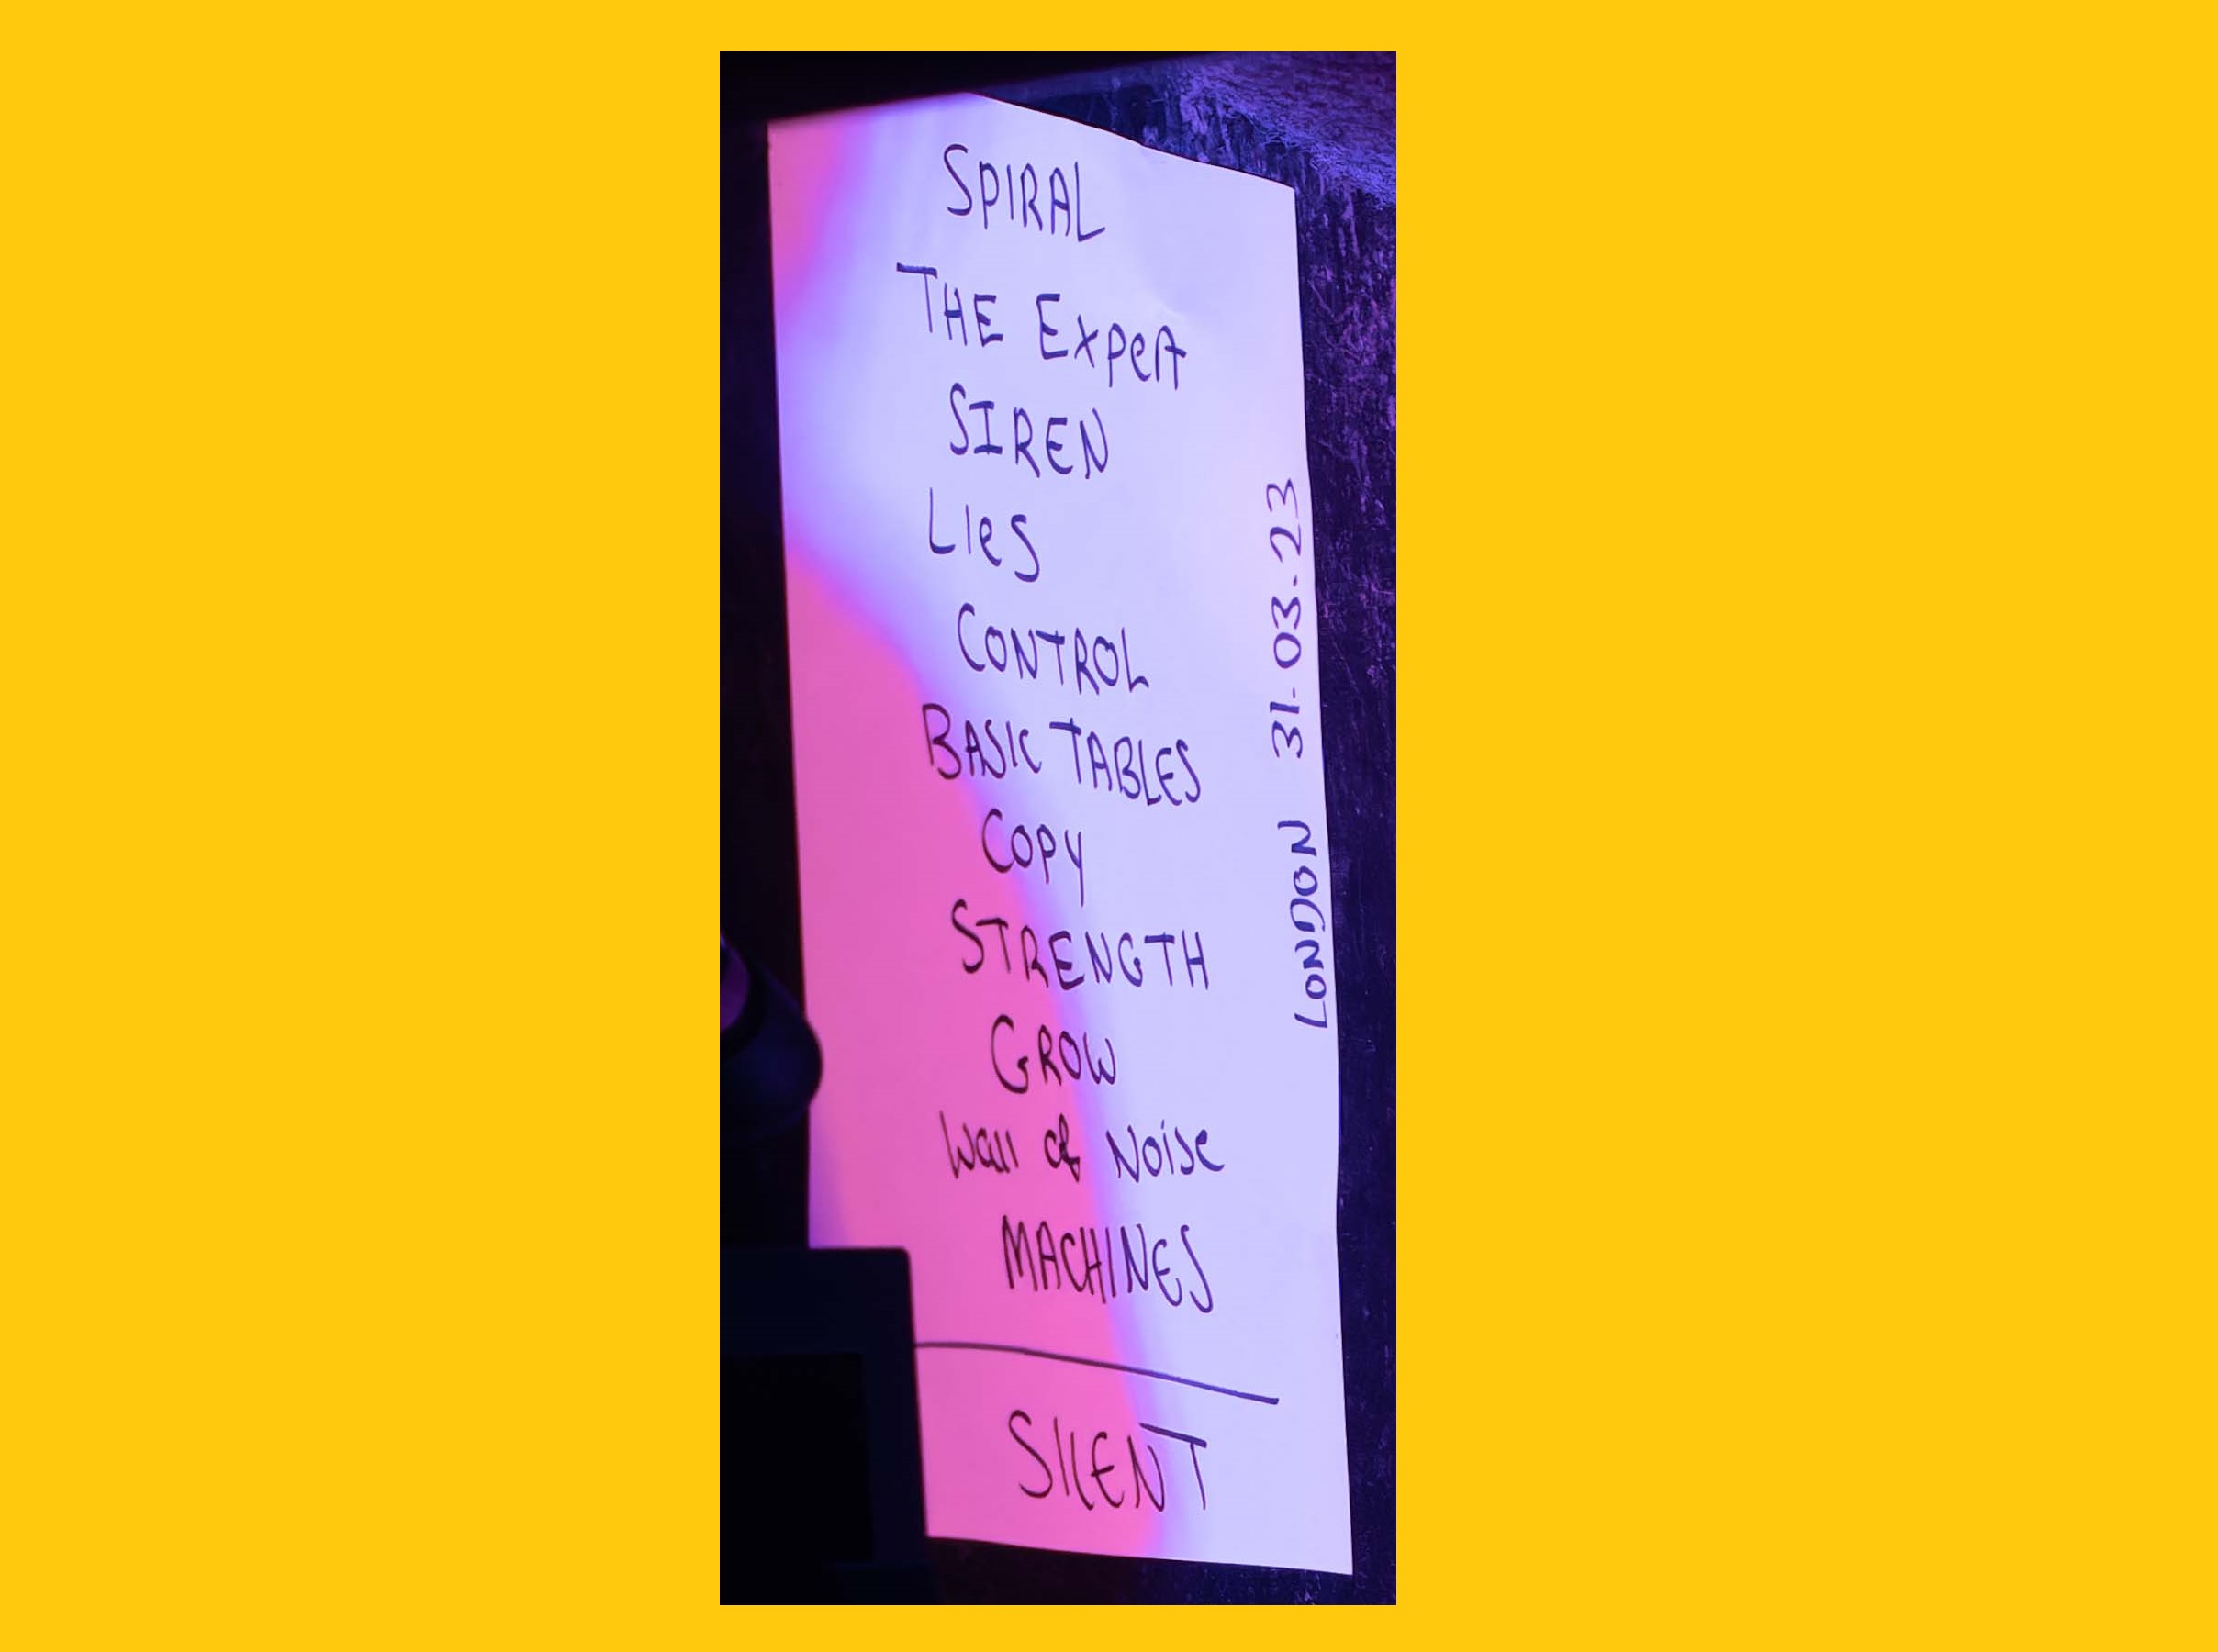 SPIRAL
THE Expert
SIREN
Lies
CONTROL
BASIC TABLES
Copy
STRENGTH
GROW
Wall of Noise
MACHINES
SILENT
LONDON 31.03.23